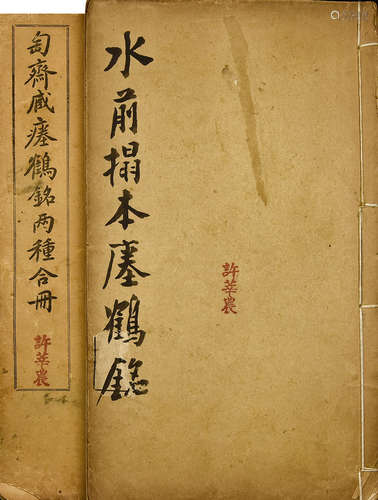 匋齋藏瘞鶴銘两種合冊
許莘農
水前搨本瘞鶴銘
許莘農